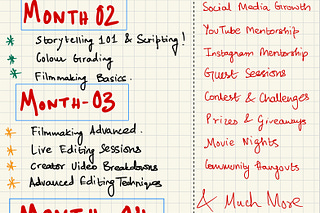 MONTH 02
Storytelling 101 & Scripting!
Colour Grading
Filmmaking Basics.
MONTH-03
Filmmaking Advanced.
Live Editing Sessions
Creator Video Breakdowns
Advanced Editing Techniques
MONTH-04
Social Media Growth
YouTube Mentorship
Instagram Mentorship
Guest Sessions
Contest & Challenges
Prizes & Giveaways
Movie Nights
Community Hangouts
& Much More